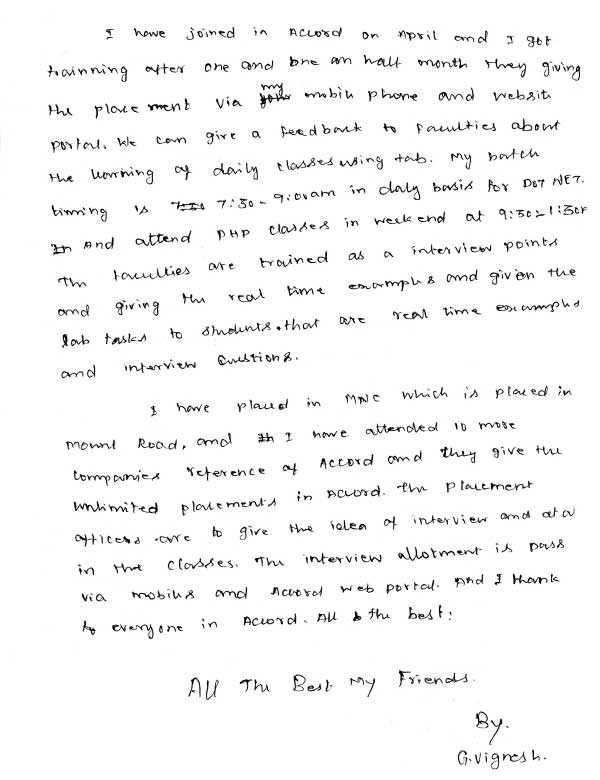 I have joined in Accord on April and I got
trainning after one and one an half month they giving
the place ment via my mobile phone and website
portal. We can give a feedback to faculties about
the learning of daily classes using tab. My batch
timing is 7:30 - 9:00am in daly basis for DOT NET.
And attend PHP classes in weekend at 9:30-1:30P
The faculties are trained as a interview points
and giving the real time examples and given the
lab tasks to students. that are real time examples
and interview Questions.
I have placed in MNC which is placed in
Mount Road, and I have attended 10 more
companies reference of Accord and they give the
unlimited placements in Accord. The Placement
officers are to give the idea of interview and
in the classes. The interview allotment is pass
via mobiles and Accord web portal. And I thank
to everyone in Accord. All the best!
All The Best My Friends.
By.
G.Vignesh.